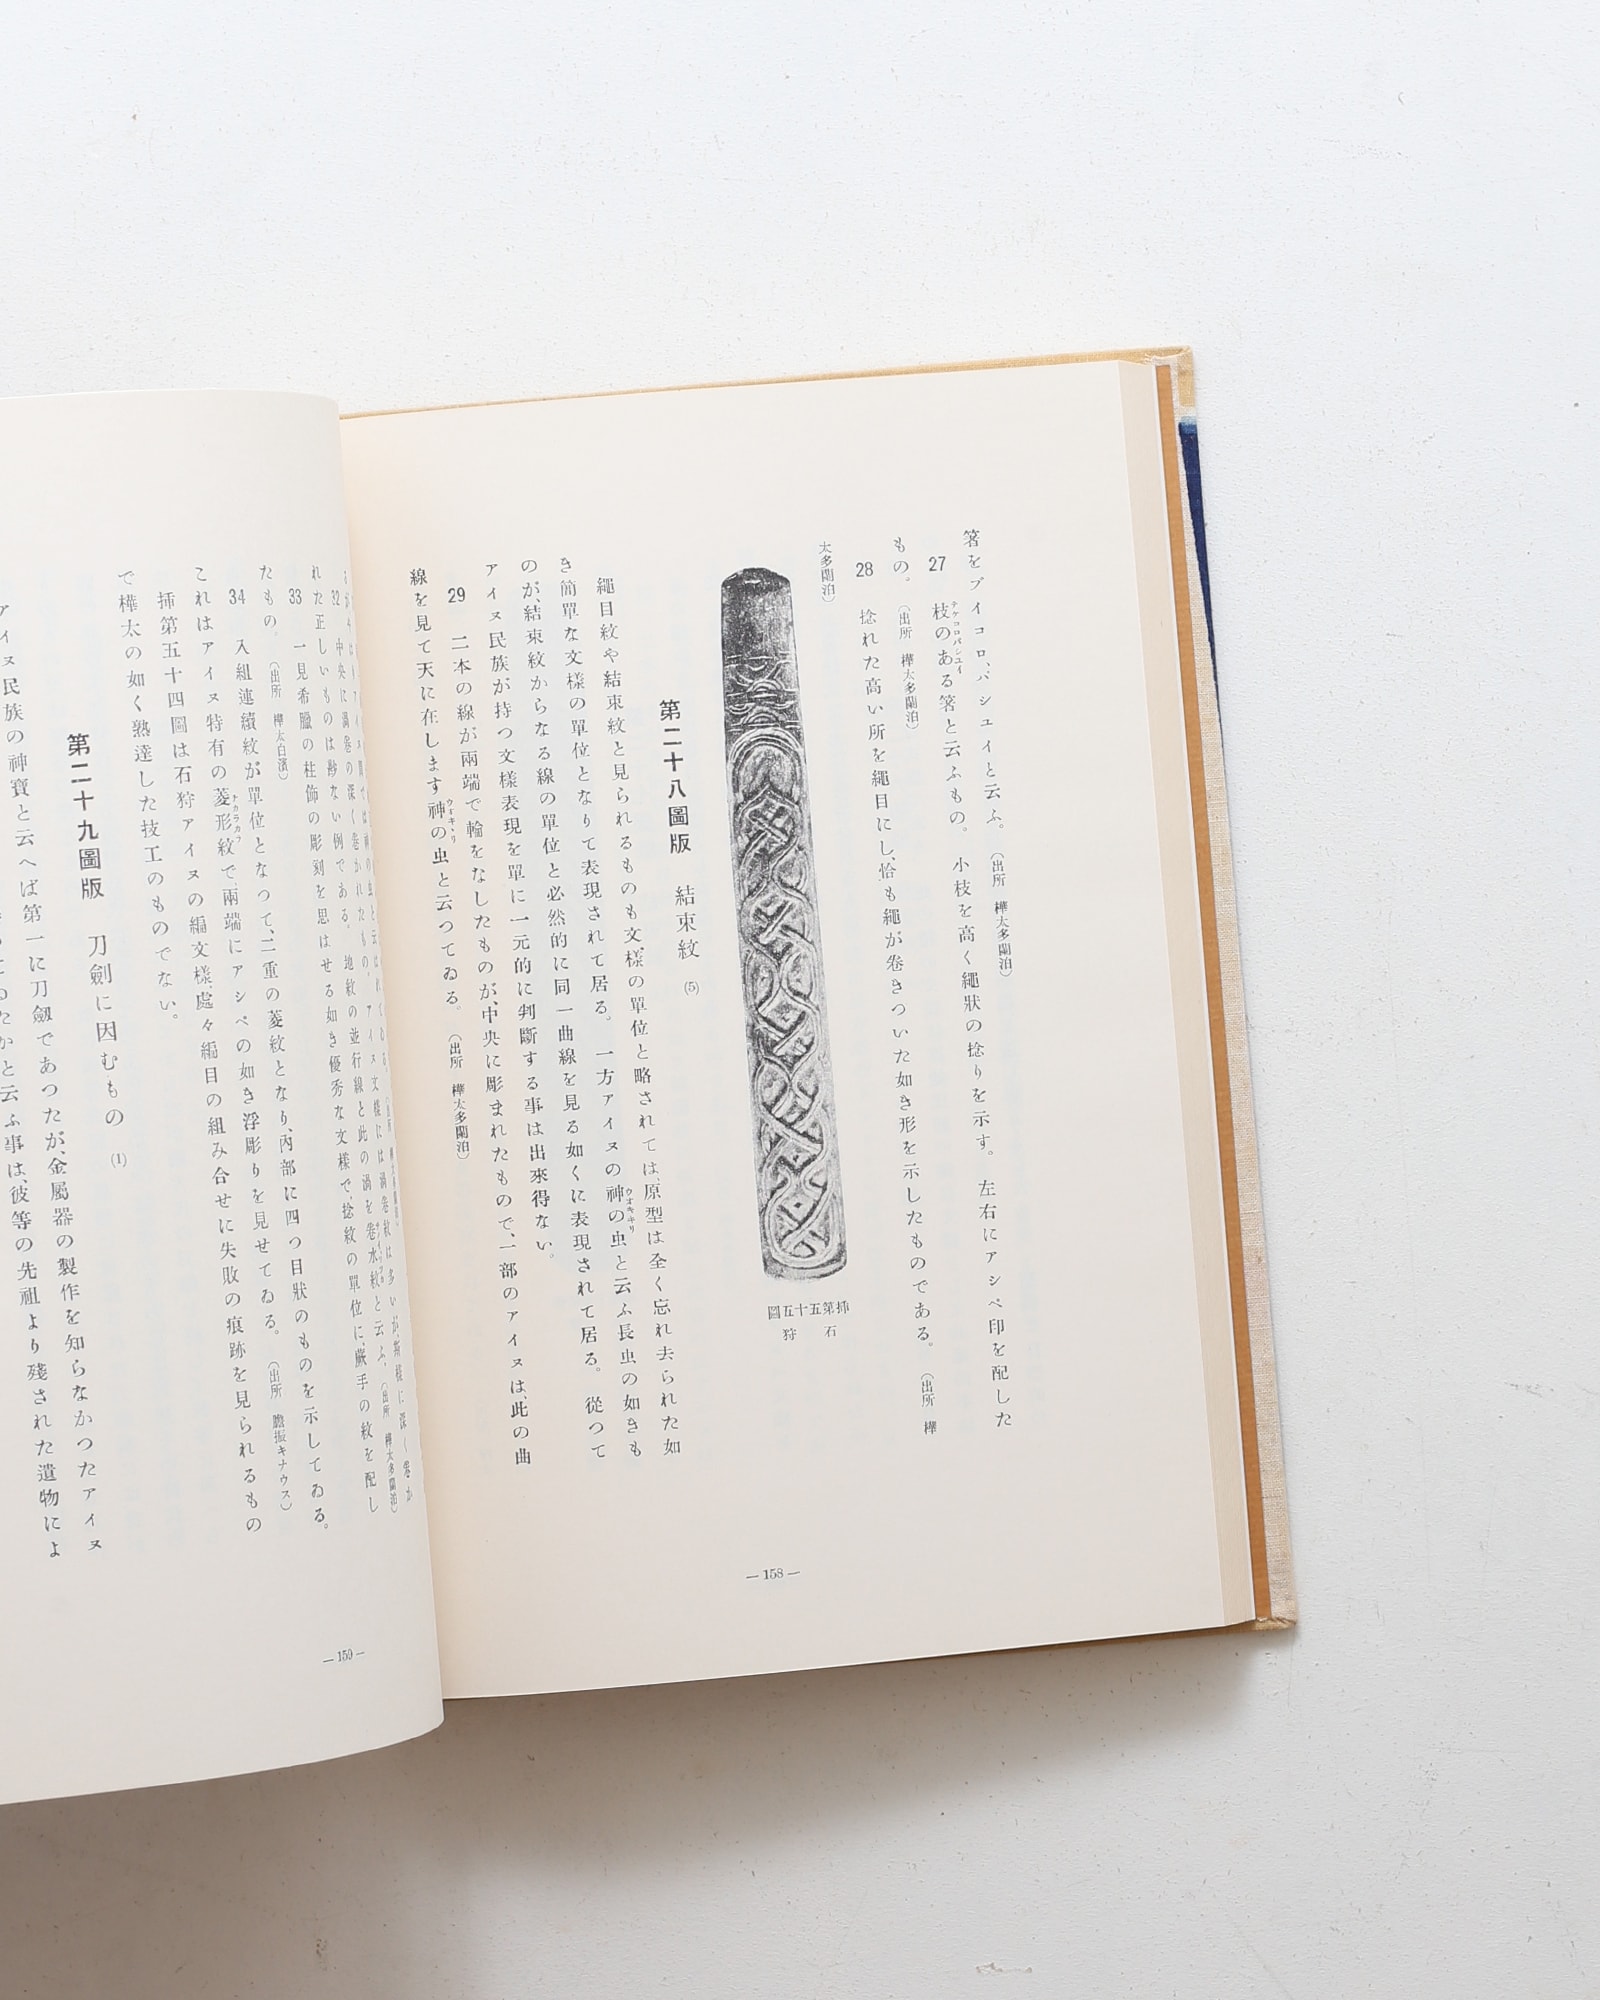 箸をプイコロ、パシュイと云ふ。（出所　樺太多蘭泊）
27　枝のある箸と云ふもの。　小枝を高く繩狀の捻りを示す。　左右にアシペ印を配した
テケコロパシユイ
もの。（出所　樺太多蘭泊）
28　捻れた高い所を繩目にし、恰も繩が卷きついた如き形を示したものである。（出所　樺
太多蘭泊）
圖五十五第揷
狩　石
第二十八圖版　結束紋　(5)
繩目紋や結束紋と見られるものも文樣の單位と略されては、原型は全く忘れ去られた如
き簡單な文樣の單位となりて表現されて居る。　一方アイヌの神の虫と云ふ長虫の如きも
ウオキキリ
のが、結束紋からなる線の單位と必然的に同一曲線を見る如くに表現されて居る。　從つて
アイヌ民族が持つ文樣表現を單に一元的に判斷する事は出來得ない。
29　二本の線が兩端で輪をなしたものが、中央に彫まれたもので、一部のアイヌは、此の曲
線を見て天に在します神の虫と云つてゐる。（出所　樺太多蘭泊）
ウオキキリ
— 158 —
32　中央に渦卷の深く卷かれたもの。アイヌ文樣には渦卷紋は多いが、斯樣に深く卷か
れた正しいものは尠ない例である。　地紋の並行線と此の渦を卷水紋と云ふ。（出所　樺太多蘭泊）
33　一見希臘の柱飾の彫刻を思はせる如き優秀な文樣で、捻紋の單位に蕨手の紋を配し
たもの。（出所　樺太白濱）
34　入組連續紋が單位となつて、二重の菱紋となり、內部に四つ目狀のものを示してゐる。
これはアイヌ特有の菱形紋で兩端にアシペの如き浮彫りを見せてゐる。（出所　膽振キナウス）
揷第五十四圖は石狩アイヌの編文樣、處々編目の組み合せに失敗の痕跡を見られるもの
で樺太の如く熟達した技工のものでない。
第二十九圖版　刀劍に因むもの　(1)
アイヌ民族の神寶と云へば第一に刀劍であつたが、金屬器の製作を知らなかつたアイヌ
たかと云ふ事は、彼等の先祖より殘された遺物によ
— 159 —